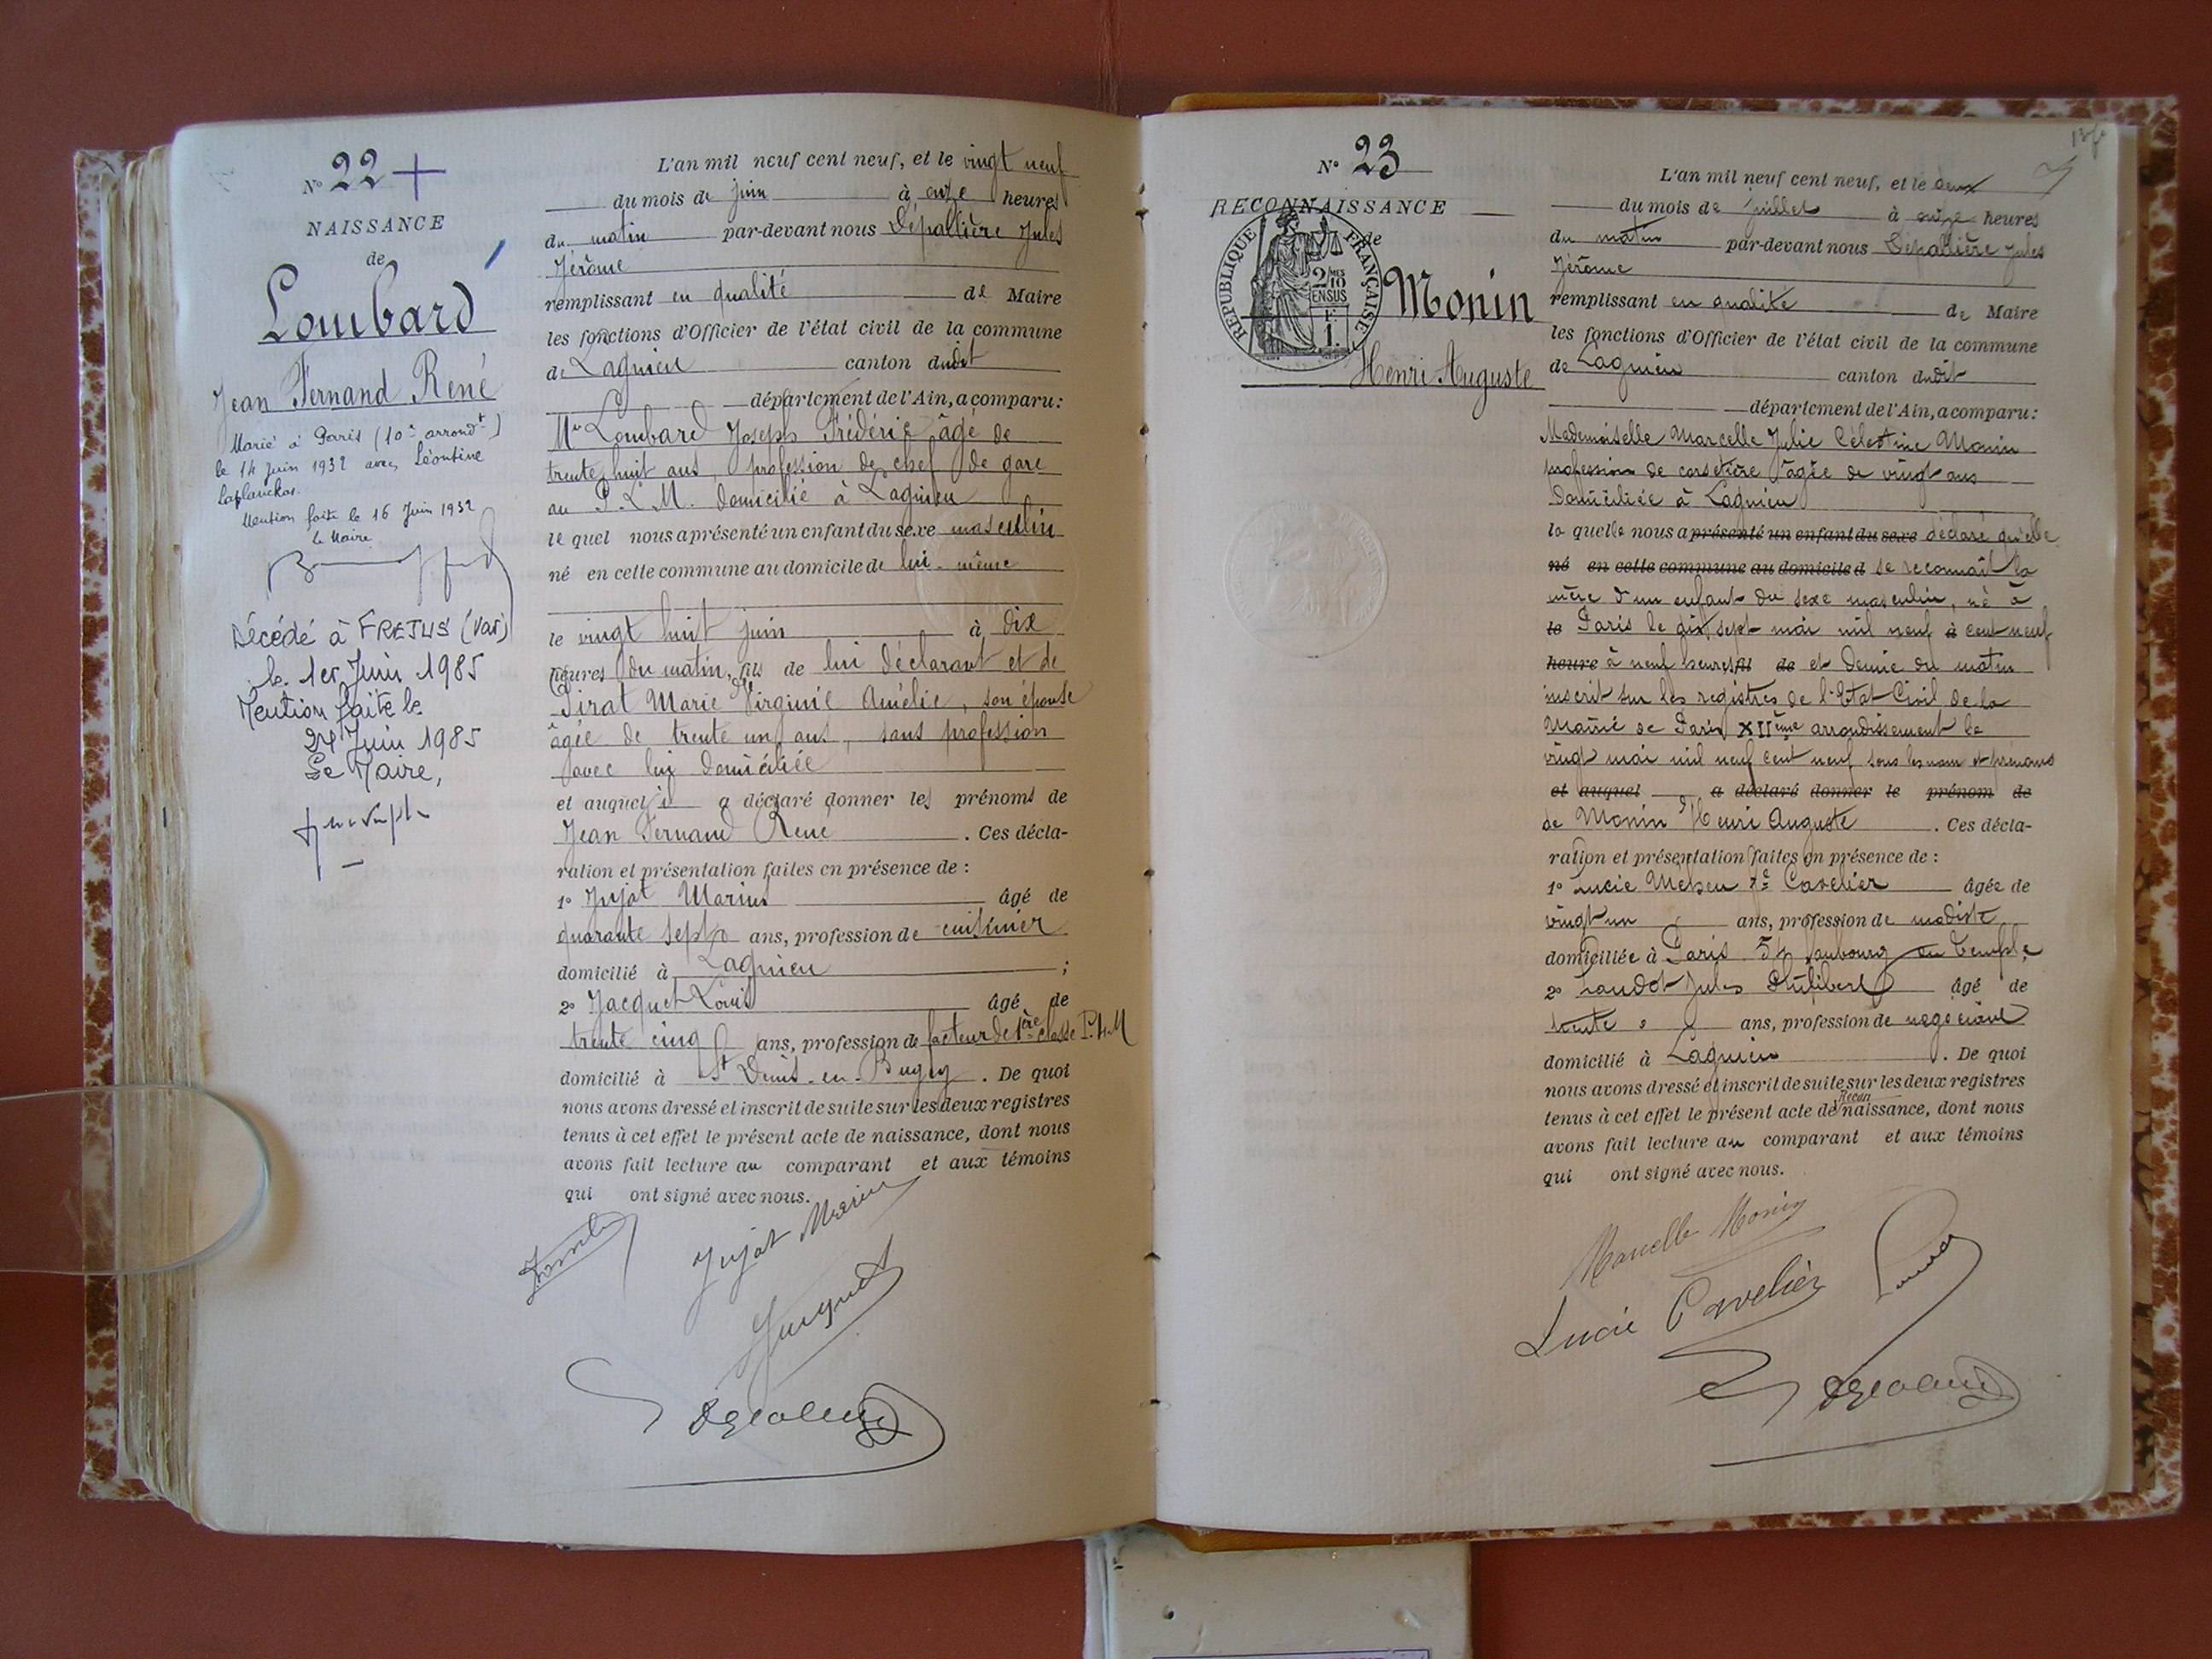 N° 22 +
NAISSANCE
de
Lombard
Jean Fernand René
Marié à Paris (10e arrondt)
le 14 Juin 1932 avec Léontine
Laplanche
Mention faite le 16 Juin 1932
le Maire
Décédé à FREJUS (Var)
le 1er Juin 1985
Mention faite le
Juin 1985
Le Maire,
L'an mil neuf cent neuf, et le vingt neuf
du mois de juin à onze heures
du matin par-devant nous Dépallière Jules
Jérôme
remplissant en qualité de Maire
les fonctions d'Officier de l'état civil de la commune
de Lagnieu canton dudit
département de l'Ain, a comparu :
Mr Lombard Joseph Frédéric âgé de
trente huit ans, profession de chef de gare
au P. L. M. domicilié à Lagnieu
le quel nous a présenté un enfant du sexe masculin
né en cette commune au domicile de lui-même
le vingt huit juin à dix
heures du matin, fils de lui déclarant et de
Pirat Marie Virginie Amélie, son épouse
âgée de trente un ans, sans profession
avec lui domiciliée
et auquel il a déclaré donner les prénoms de
Jean Fernand René . Ces décla-
ration et présentation faites en présence de :
1° Jujat Marius âgé de
quarante sept ans, profession de cuisinier
domicilié à Lagnieu ;
2° Jacquet Louis âgé de
trente cinq ans, profession de facteur de 1ère classe P.L.M
domicilié à St Denis-en-Bugey . De quoi
nous avons dressé et inscrit de suite sur les deux registres
tenus à cet effet le présent acte de naissance, dont nous
avons fait lecture au comparant et aux témoins
qui ont signé avec nous.
Jujat Marius
Jacquet
N° 23
RECONNAISSANCE
de
REPUBLIQUE FRANÇAISE
2/10 MES
EN SUS
1 F.
Monin
Henri Auguste
L'an mil neuf cent neuf, et le deux
du mois de juillet à onze heures
du matin par-devant nous Dépallière Jules
Jérôme
remplissant en qualité de Maire
les fonctions d'Officier de l'état civil de la commune
de Lagnieu canton dudit
département de l'Ain, a comparu :
Mademoiselle Marcelle Julie Célestine Monin
profession de corsetière âgée de vingt ans
domiciliée à Lagnieu
la quelle nous a présenté un enfant du sexe déclaré qu'elle
né en cette commune au domicile d se reconnaît la
mère d'un enfant du sexe masculin, né à
le Paris le dix sept mai mil neuf à cent neuf
heure à neuf heures fil de et demie du matin
inscrit sur les registres de l'Etat Civil de la
Mairie de Paris XIIème arrondissement le
vingt mai mil neuf cent neuf sous les nom et prénoms
et auquel a déclaré donner le prénom de
de Monin Henri Auguste . Ces décla-
ration et présentation faites en présence de :
1° Lucie Cavelier âgée de
vingt un ans, profession de modiste
domiciliée à Paris 54 faubourg du Temple
2° Landot Jules Philibert âgé de
trente ans, profession de négociant
domicilié à Lagnieu . De quoi
nous avons dressé et inscrit de suite sur les deux registres
tenus à cet effet le présent acte de Recon naissance, dont nous
avons fait lecture au comparant et aux témoins
qui ont signé avec nous.
Marcelle Monin
Lucie Cavelier